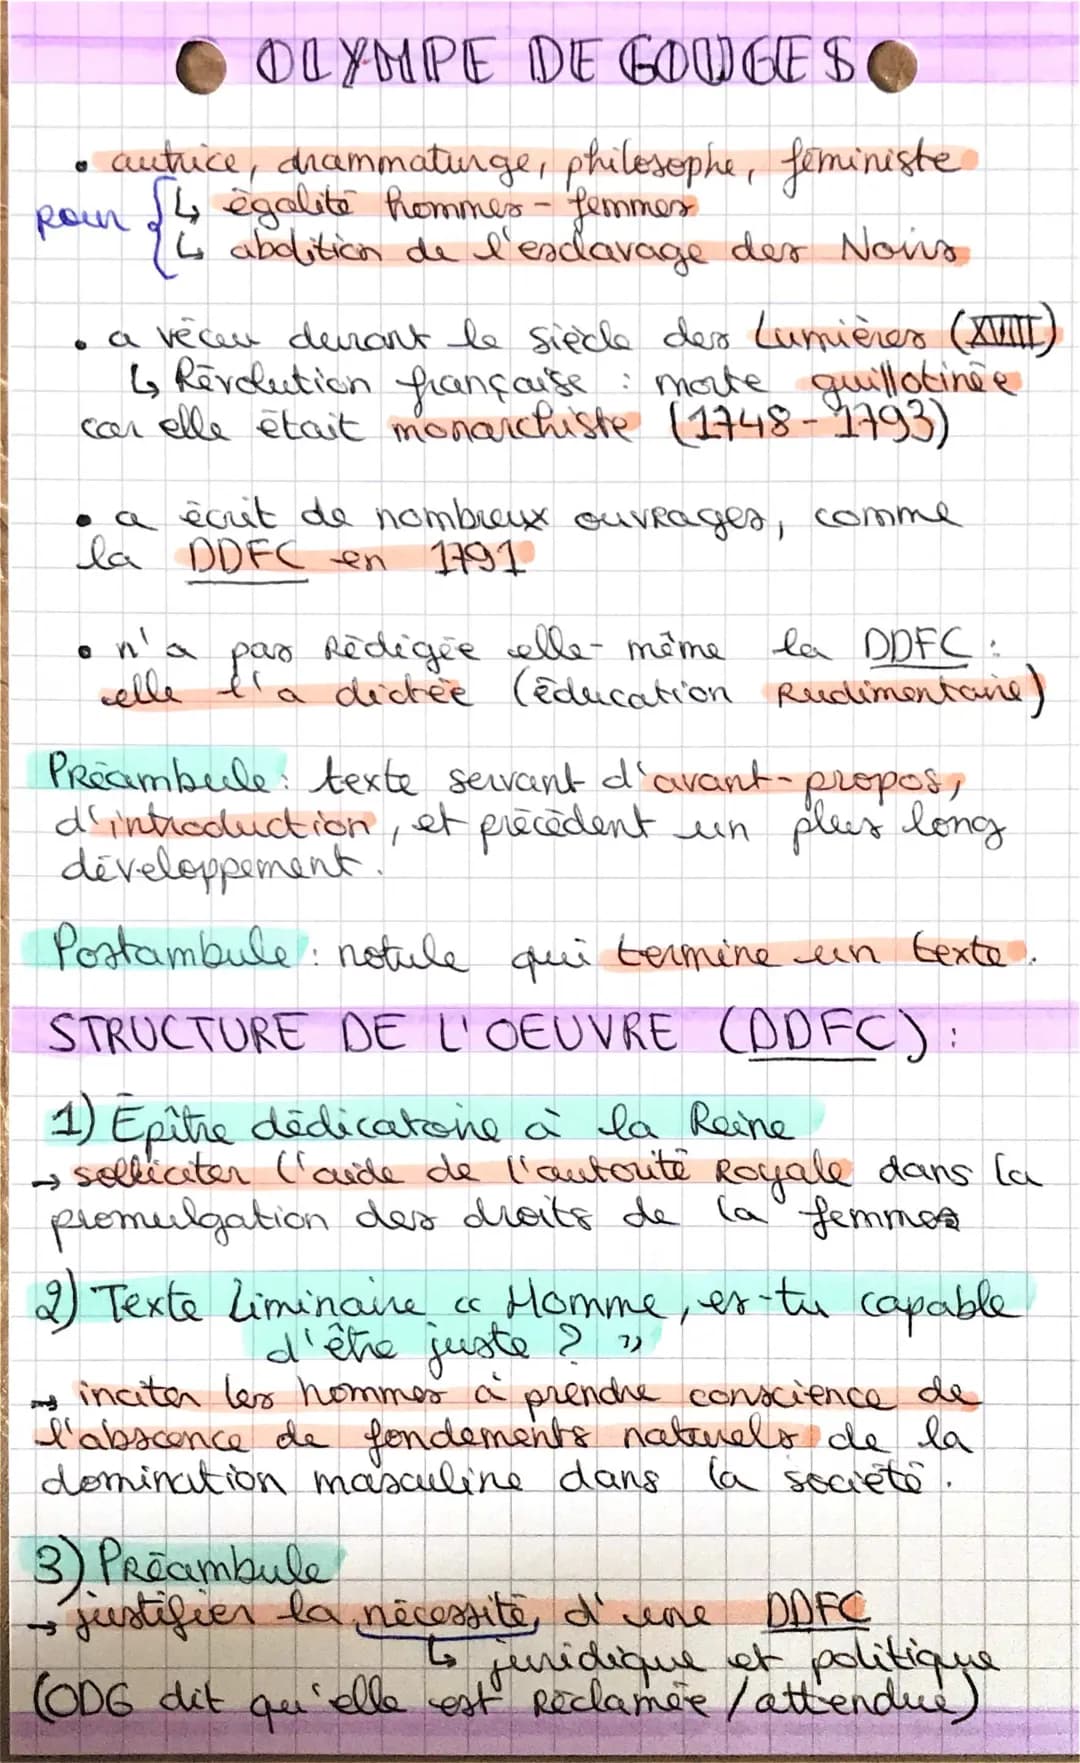 OLYMPE DE GOUGES
• autrice, drammaturge, philosophe, féministe
pour { ↳ égalité hommes - femmes
↳ abolition de l'esclavage des Noirs
• a vécu durant le siècle des Lumières (XVIII)
↳ Révolution française : morte guillotinée
car elle était monarchiste (1748 - 1793)
• a écrit de nombreux ouvrages, comme
la DDFC en 1791
• n'a pas rédigée elle-même la DDFC :
elle l'a dictée (éducation rudimentaire)
Préambule : texte servant d'avant-propos,
d'introduction, et précédent un plus long
développement.
Postambule : notule qui termine un texte.
STRUCTURE DE L'OEUVRE (DDFC) :
1) Épître dédicatoire à la Reine
→ solliciter l'aide de l'autorité Royale dans la
promulgation des droits de la femmes
2) Texte liminaire « Homme, es-tu capable
d'être juste ? »
→ inciter les hommes à prendre conscience de
l'abscence de fondements naturels de la
domination masculine dans la société.
3) Préambule
→ justifier la nécessité d'une DDFC
↳ juridique et politique
(ODG dit qu'elle est réclamée / attendue)